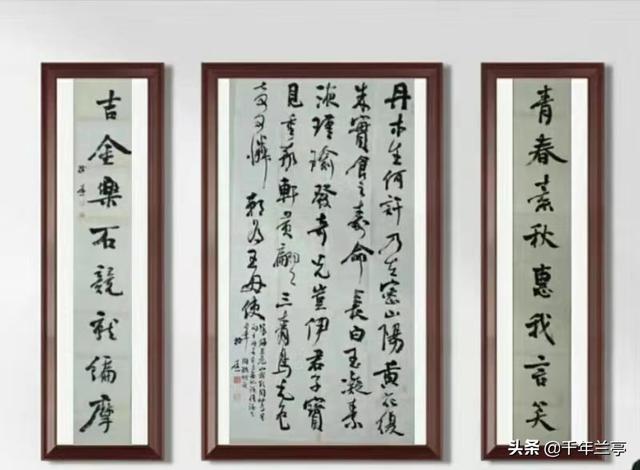 青春素秋惠我言笑
丹木生何許乃在密山陽黃花復
朱實食之壽命長白玉凝素
液瑾瑜發奇光豈伊君子寶
見重我軒黃翩々三青鳥毛色
奇可憐朝為王母使
吉金樂石競編摩
头条 @千年兰亭